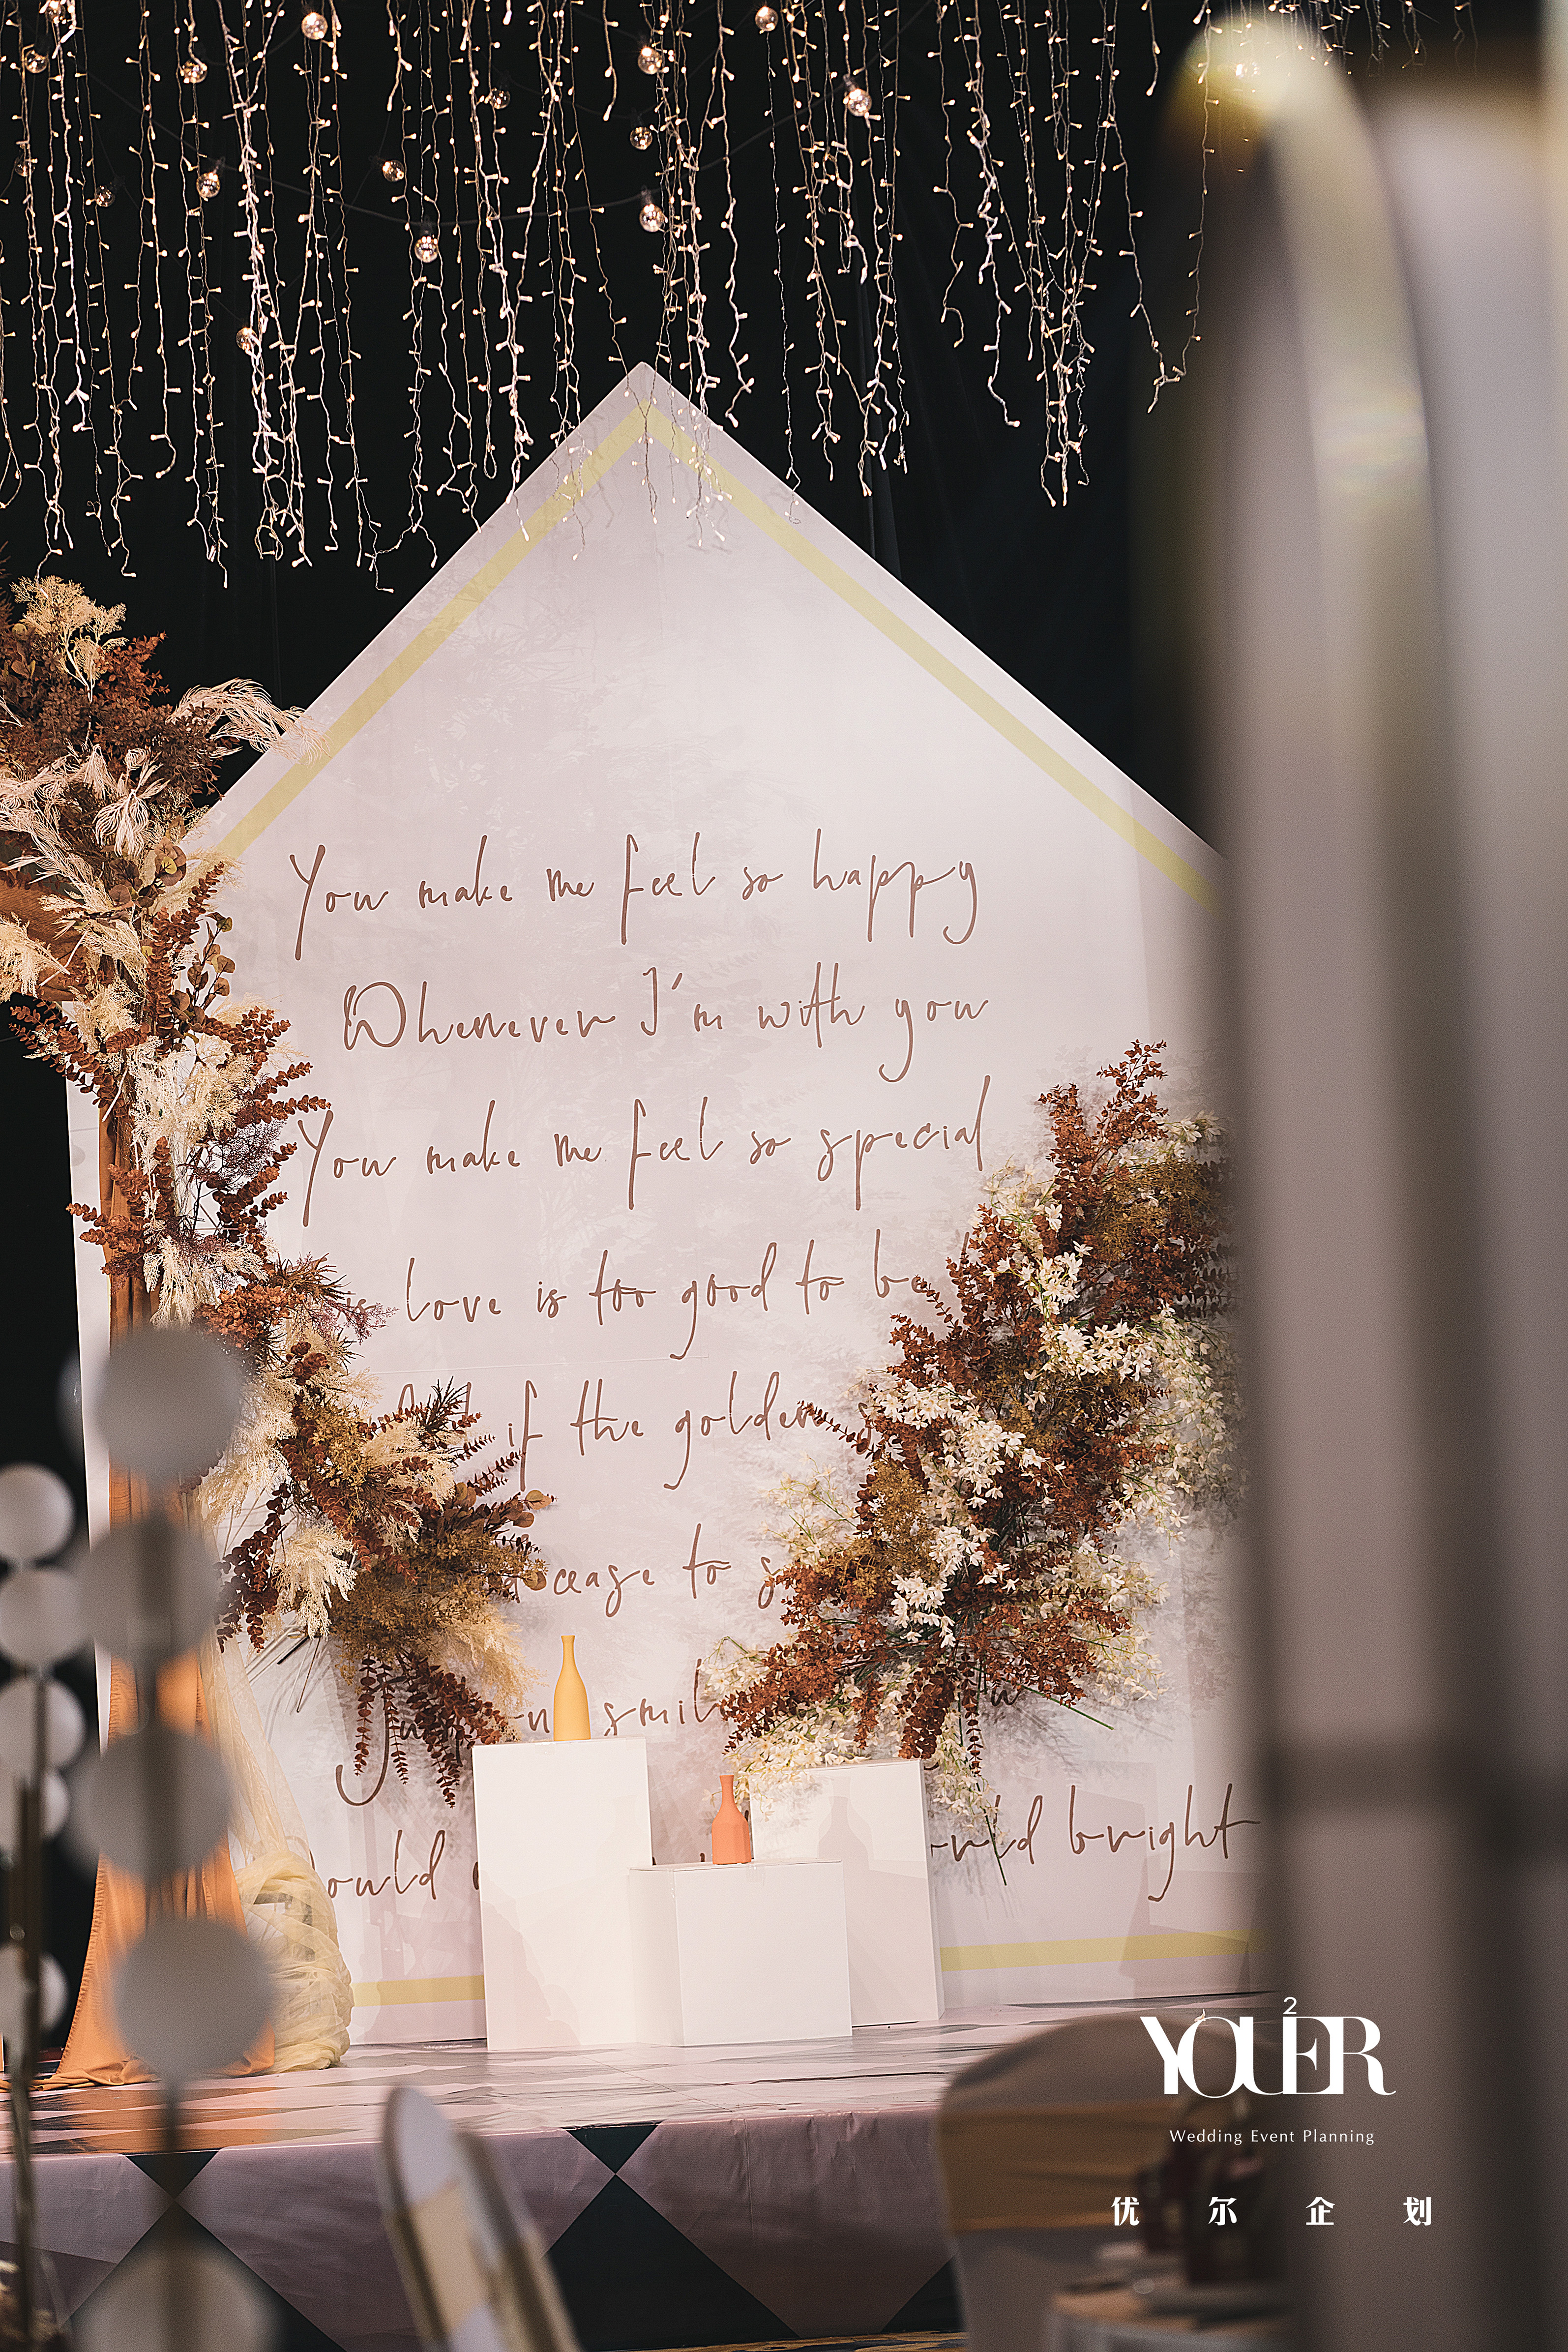 You make me feel so happy
Whenever I'm with you
You make me feel so special
love is too good to be
if the golden
cease to
bright
2
YOUER
Wedding Event Planning
优尔企划